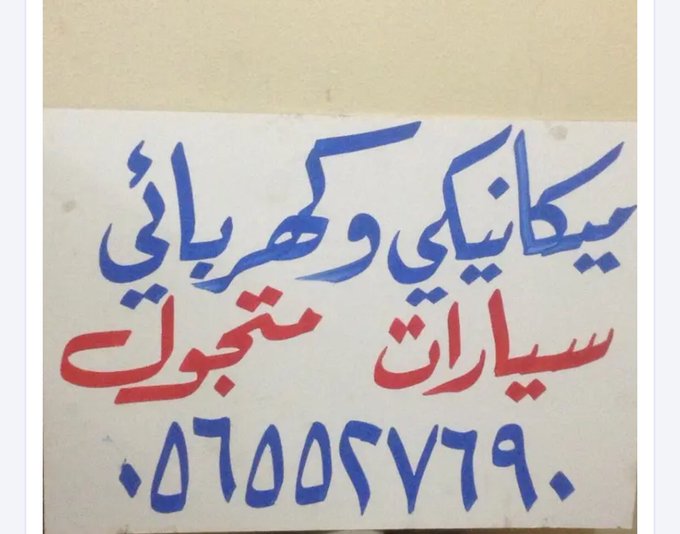 ميكانيكي وكهربائي
سيارات متجول
٠٥٦٥٥٢٧٦٩٠